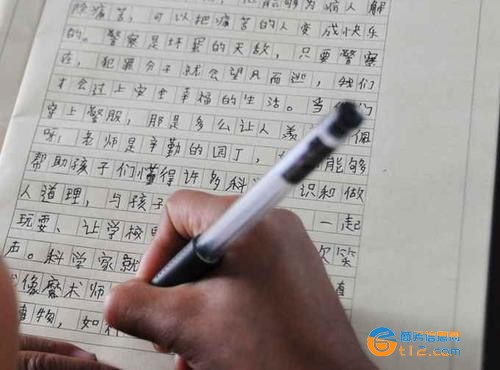 能够为病人解
除痛苦，可以把痛苦的人变成快乐
的。警察是坏蛋的天敌，只要警察
在，犯罪分子就会望风而逃，我们
才会过上安全幸福的生活。当
穿上警服，那是多么让人羡 佩
呀，老师是辛勤的园丁， 能够
帮助孩子们懂得许多科 识和做
人道理，与孩子 一起
玩耍、让学校
声。科学家就 欢笑
像魔术师
物，如
商务信息网
tlc.com